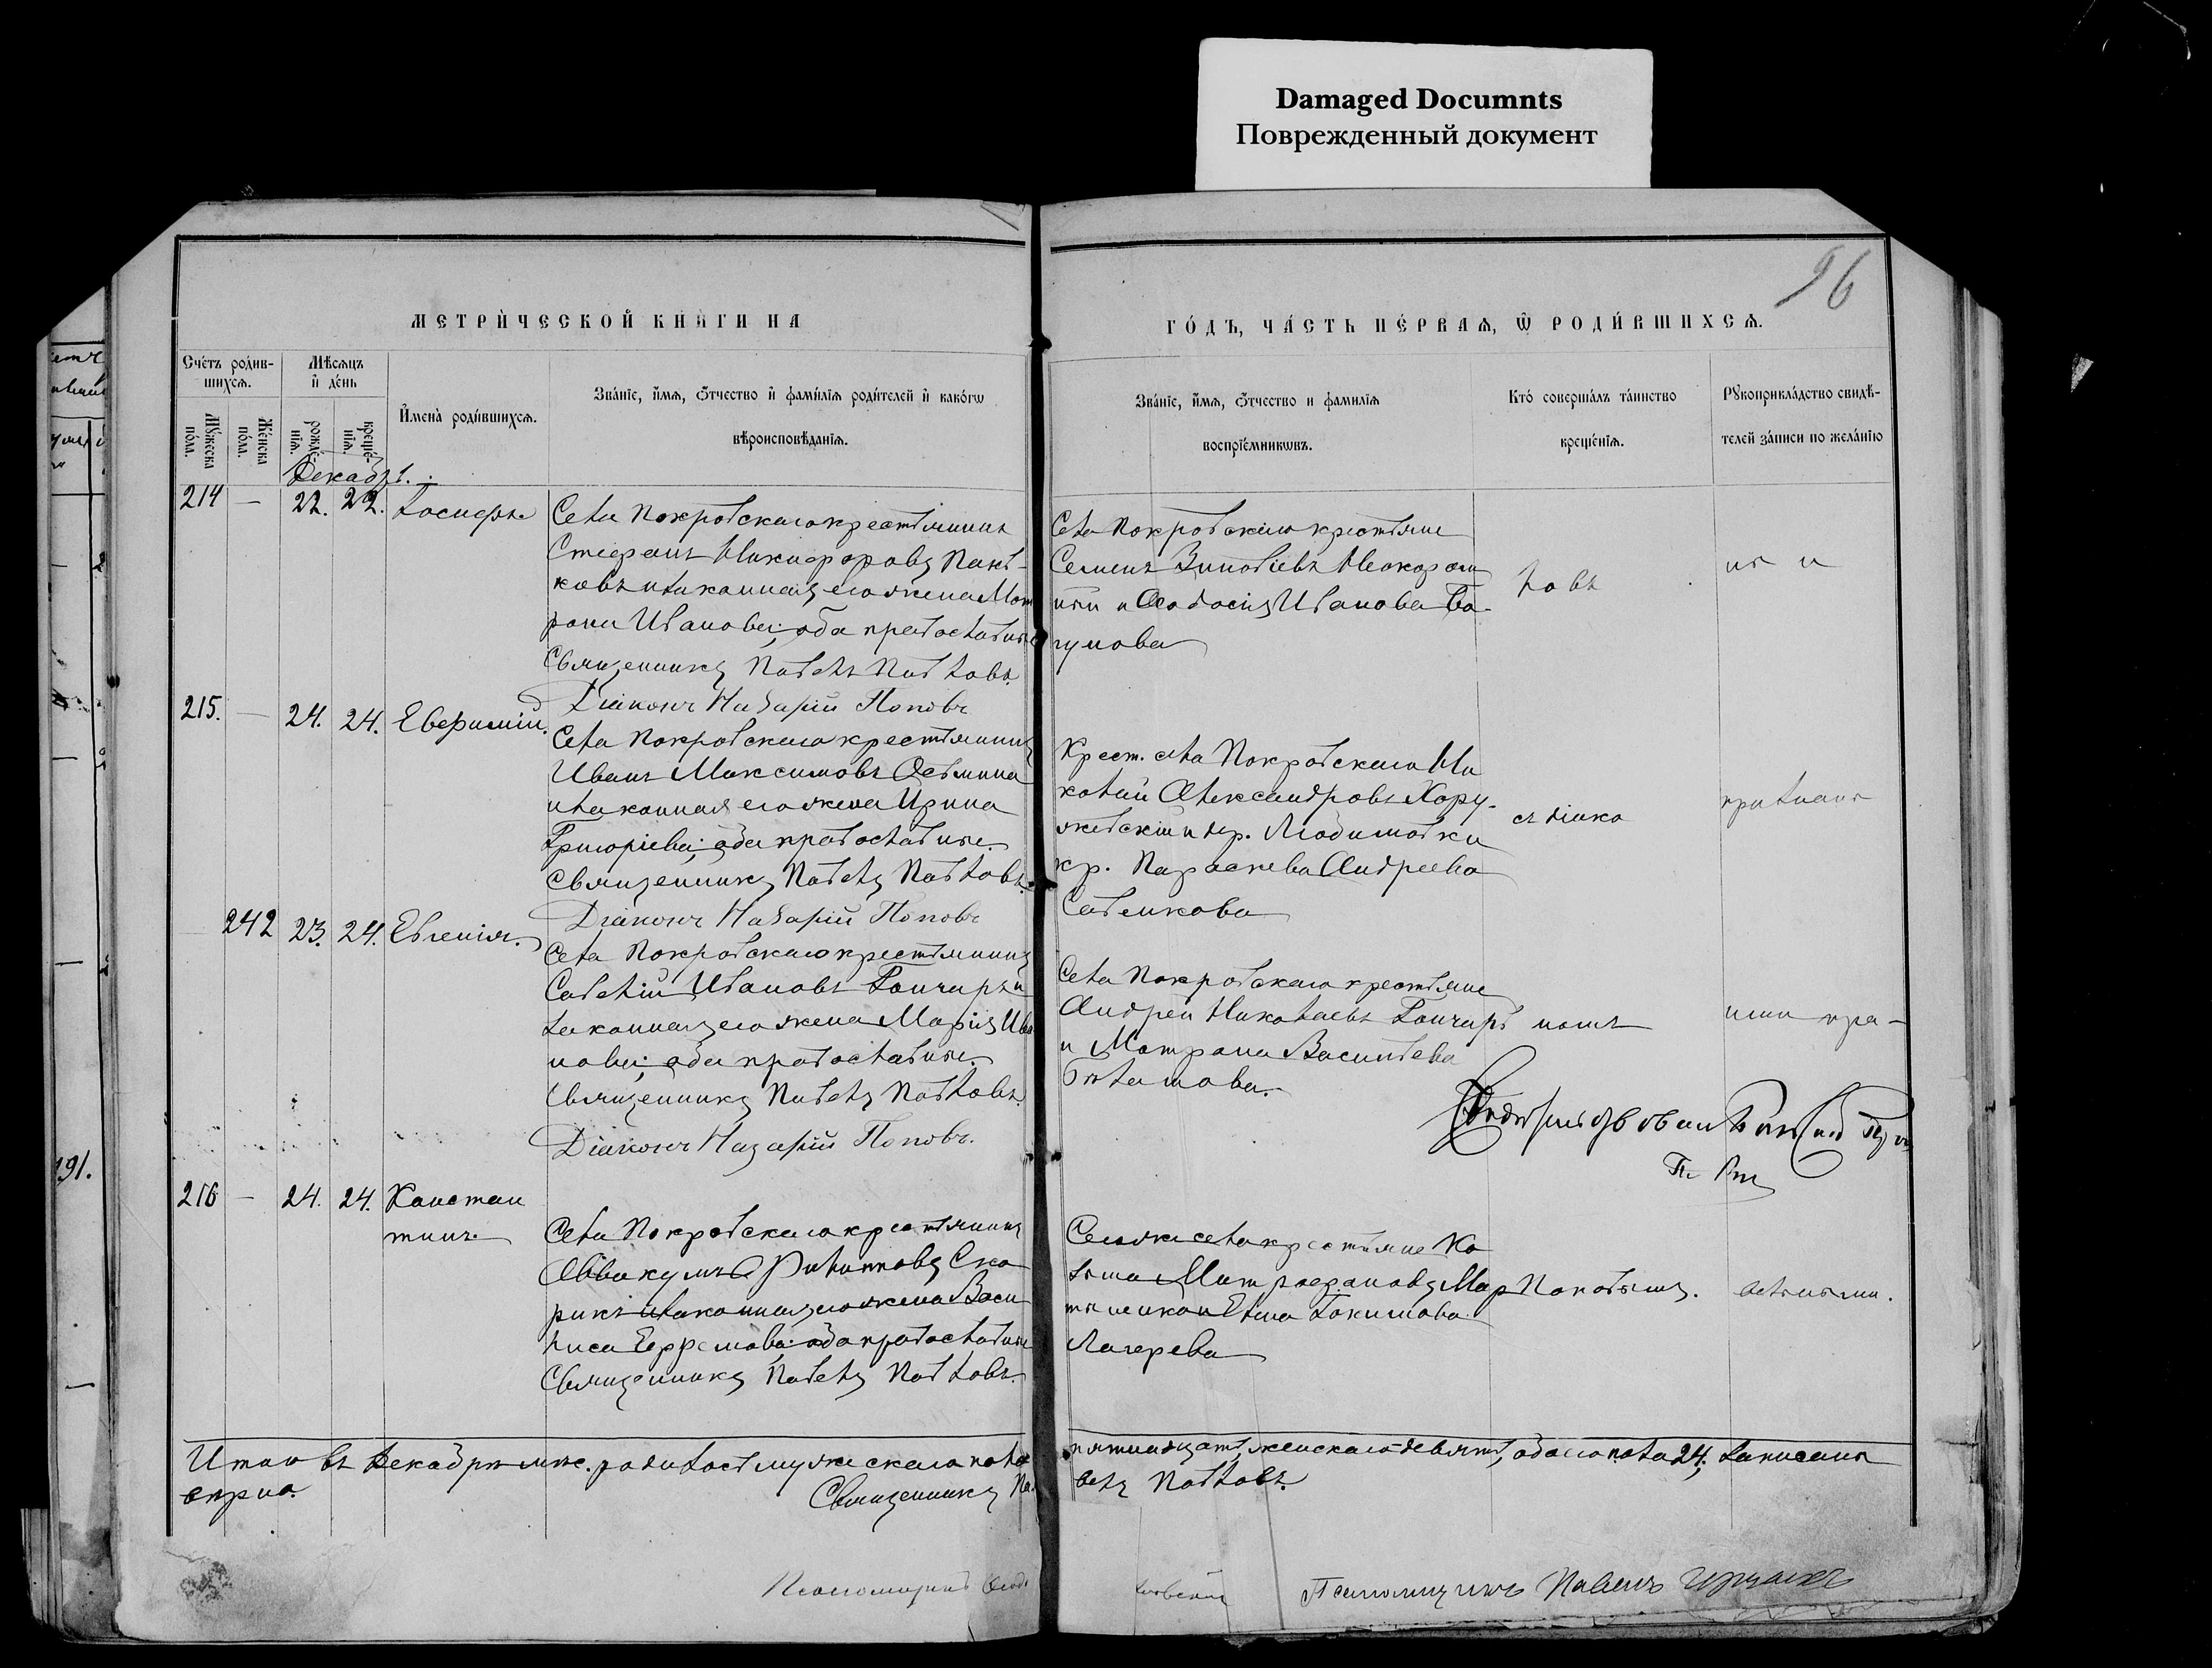 Damaged Documnts
Поврежденный документ
96
МЕТРИ́ЧЕСКОЙ КНИ́ГИ НА
ГО́ДЪ, ЧА́СТЬ ПЕ́РВАЯ, Ѿ РОДИ́ВШИХСѦ.
Сче́тъ роди́в-
шихсѧ.
Мѣ́сѧцъ
и҆ де́нь
Му́жеска по́ла.
Же́нска по́ла.
рожде́-
нїѧ
креще́-
нїѧ
И҆мена̀ роди́вшихсѧ.
Зва́нїе, и҆́мѧ, ѻ҆́тчество и҆ фами́лїѧ роди́телей и҆ како́гѡ
вѣроисповѣ́данїѧ.
Зва́нїе, и҆́мѧ, ѻ҆́тчество и фами́лїѧ
воспрїе́мникѡвъ.
Кто́ соверша́лъ та́инство
креще́нїѧ.
Рꙋкоприкла́дство свидѣ́-
телей за́писи по жела́нїю
Декабрь.
214 — 22. 22. Іосифъ.
Села Покровскаго крестьянинъ
Стефанъ Никифоровъ Пань-
ковъ и законная его жена Мат
рона Иванова; оба православные
Священникъ Павелъ Павловъ.
Діаконъ Назарій Поповъ
Села Покровскаго крестьяне
Семенъ Зиновіевъ
и Ѳеодосія Иванова
гунова
ловъ
215. — 24. 24. Евфимій.
Села Покровскаго крестьянинъ
Иванъ Максимовъ
и законная его жена Ирина
Григоріева; оба православные.
Священникъ Павелъ Павловъ.
Діаконъ Назарій Поповъ
Крест. села Покровскаго Ни
колай Александровъ Хору-
жевскій и дер. Любимовки
кр. Параскева Андреева
Савенкова
съ діако
242 23. 24. Евгенія.
Села Покровскаго крестьянинъ
Савелій Ивановъ Гончаръ и
законная его жена Марія Ива
нова; оба православные.
Священникъ Павелъ Павловъ.
Діаконъ Назарій Поповъ.
Села Покровскаго крестьяне
Андрей Николаевъ Гончаръ
и Матрона Васильева
номъ
216 — 24. 24. Констан
тинъ.
Села Покровскаго крестьянинъ
Аввакумъ Филипповъ Ско
рикъ и законная его жена Васи
лиса Ефремова; оба православные
Священникъ Павелъ Павловъ.
Сего же села крестьяне Ко
зьма Митрофановъ Мар
тыненко и Елена Іакимова
Лагерева
Поповымъ.
Итого въ Декабрѣ мѣс. родилось мужескаго пола
пятнадцать, женскаго девять, обоего пола 24; записано
вѣрно.
Священникъ Па
велъ Павловъ.
Псаломщикъ
Псаломщикъ Павелъ